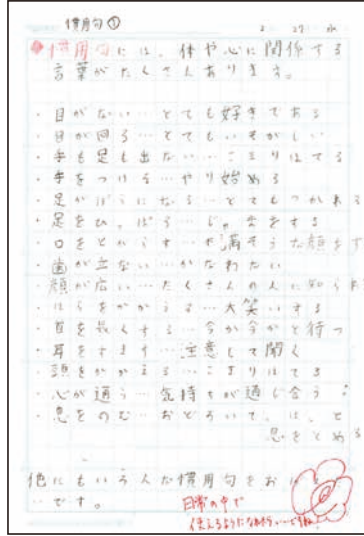 慣用句①
2 27 水
慣用句には、体や心に関係する
言葉がたくさんあります。
・目がない…とても好きである
・目が回る…とてもいそがしい
・手も足も出ない…こまりはてる
・手をつける…やり始める
・足がぼうになる…とてもつかれる
・足をひっぱる…じゃまをする
・口をとがらす…不満そうな顔をす
・歯が立たない…かなわない
顔が広い…たくさんの人に知られ
・はらをかかえる…大笑いする
・首を長くする…今か今かと待つ
・耳をすます…注意して聞く
・頭をかかえる…こまりはてる
・心が通う…気持ちが通じ合う
・息をのむ…おどろいて、はっと
息をとめる
他にもいろんな慣用句をおぼえ
です。
日常の中で
使えるようになれたらいいですね